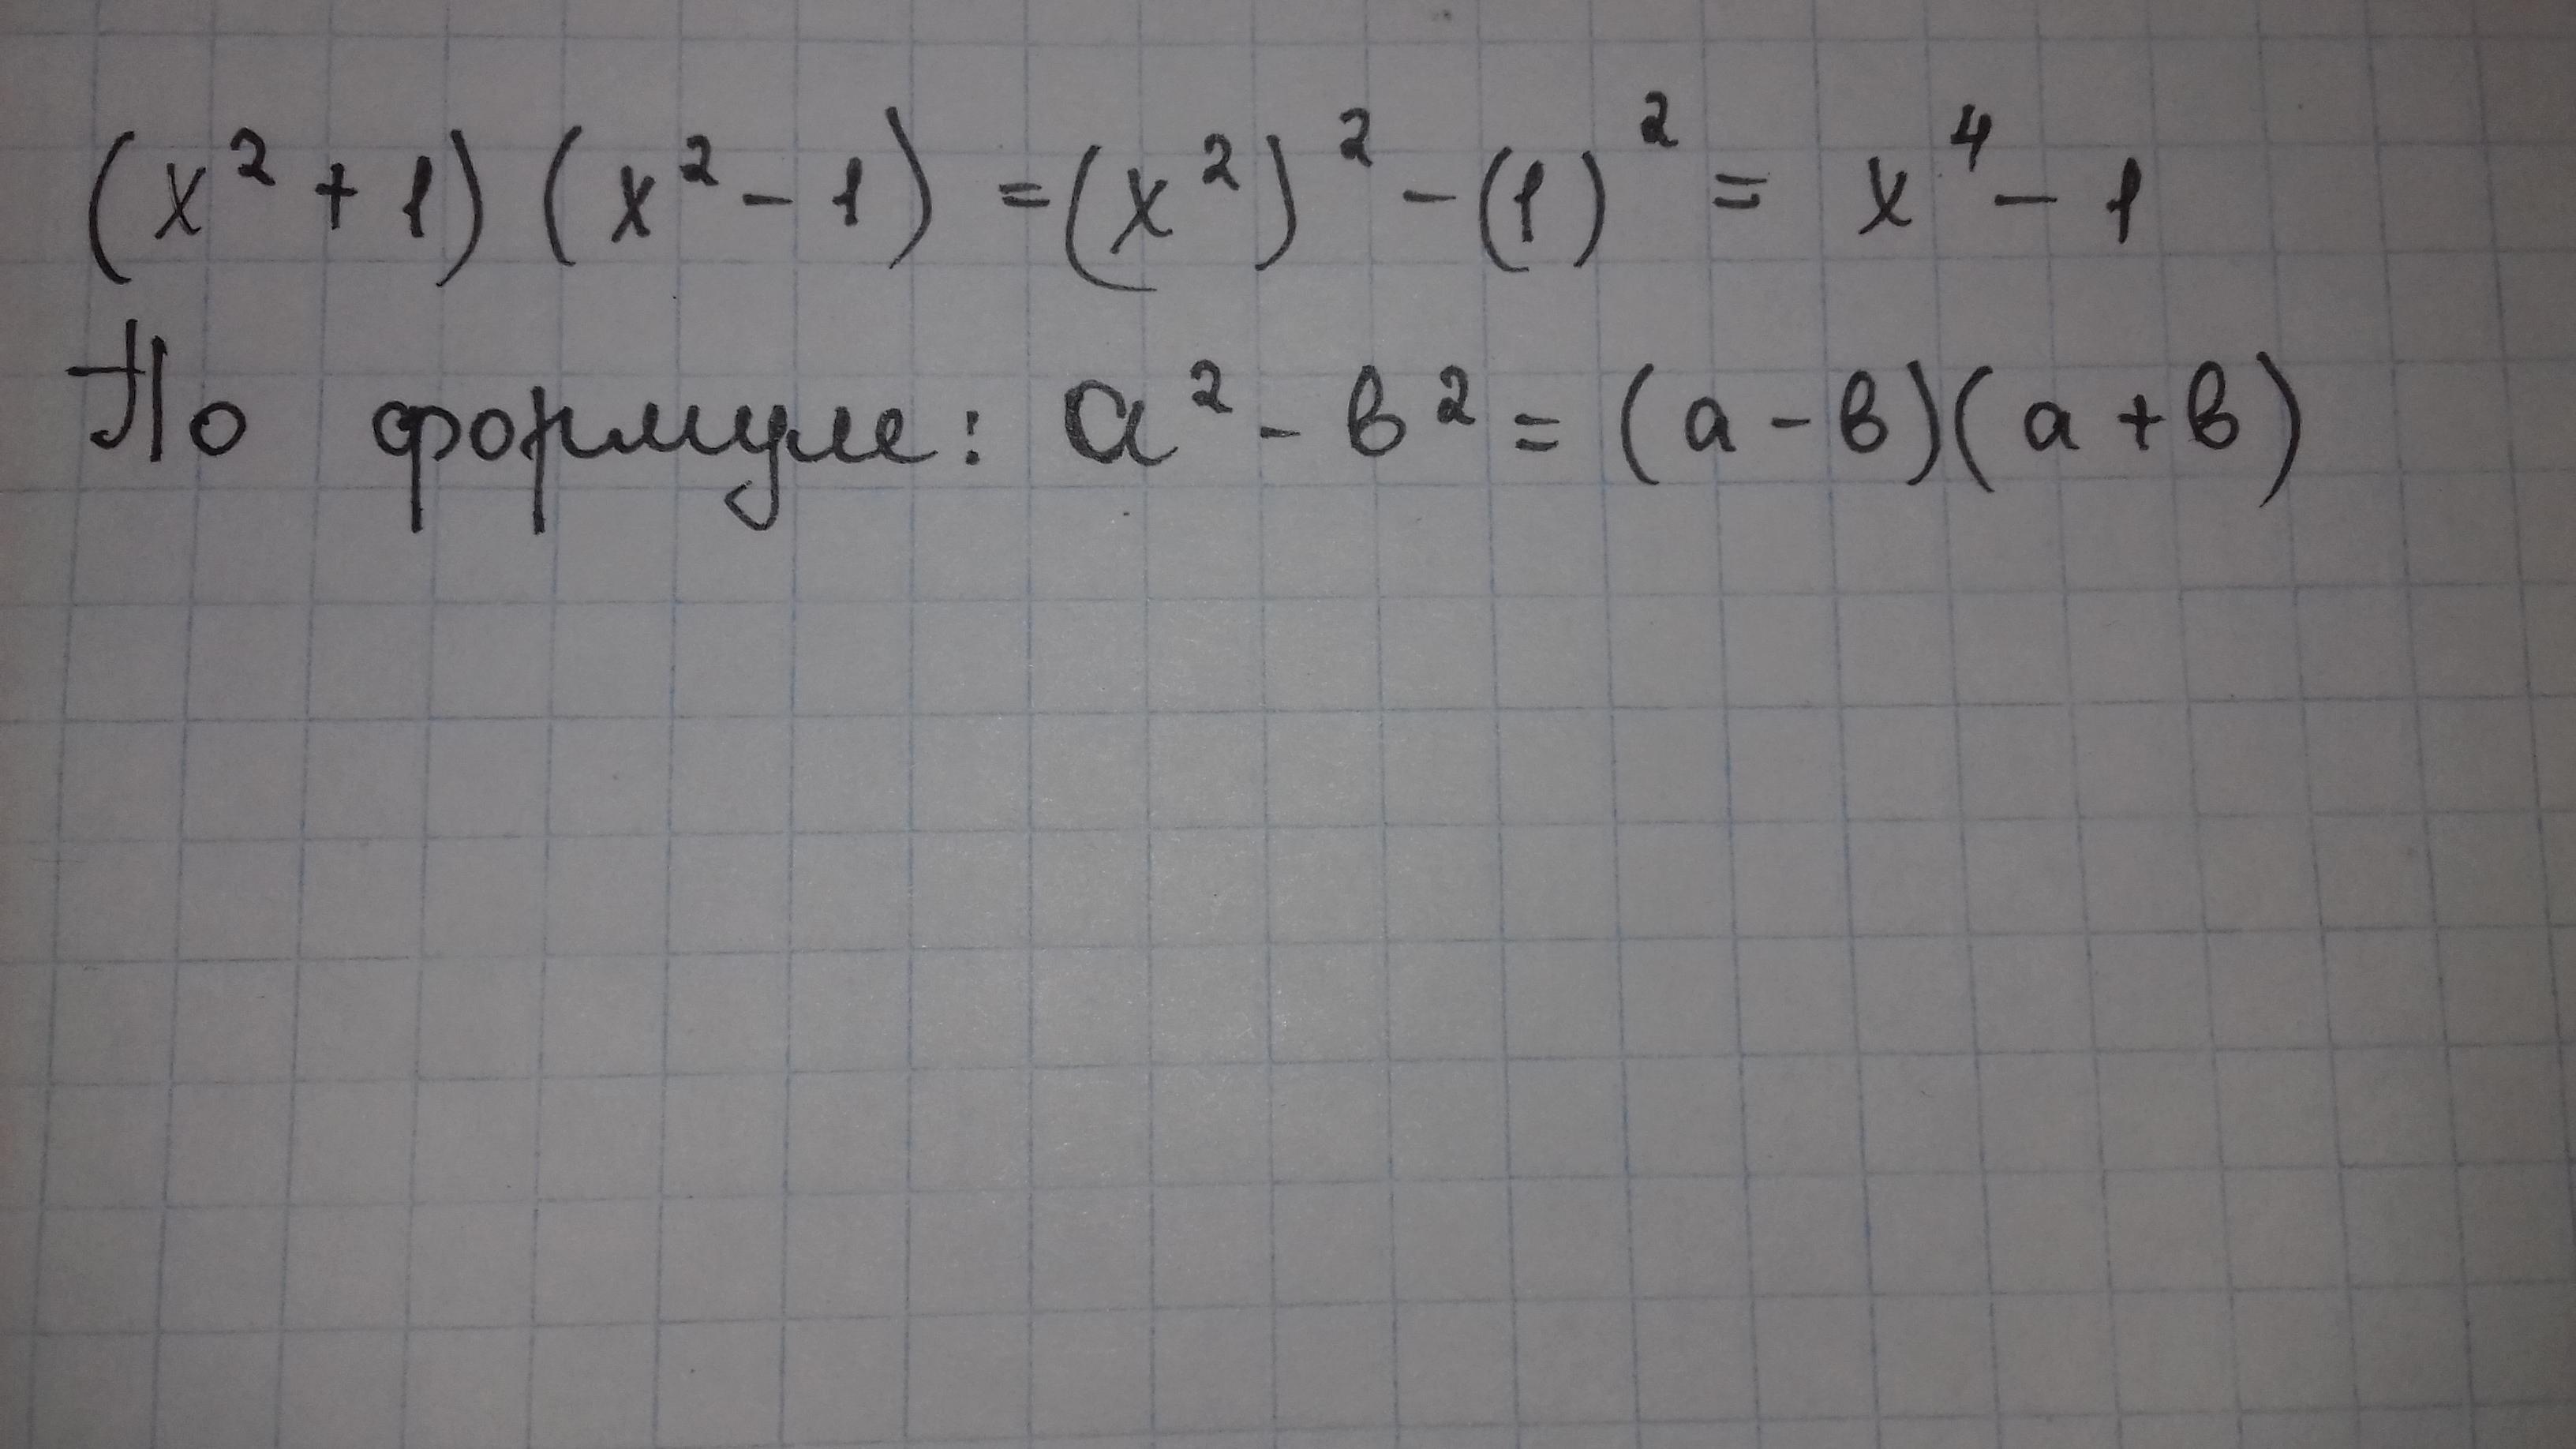 (x² + 1) (x² - 1) = (x²)² - (1)² = x⁴ - 1
По формуле: a² - в² = (a - в)(a + в)